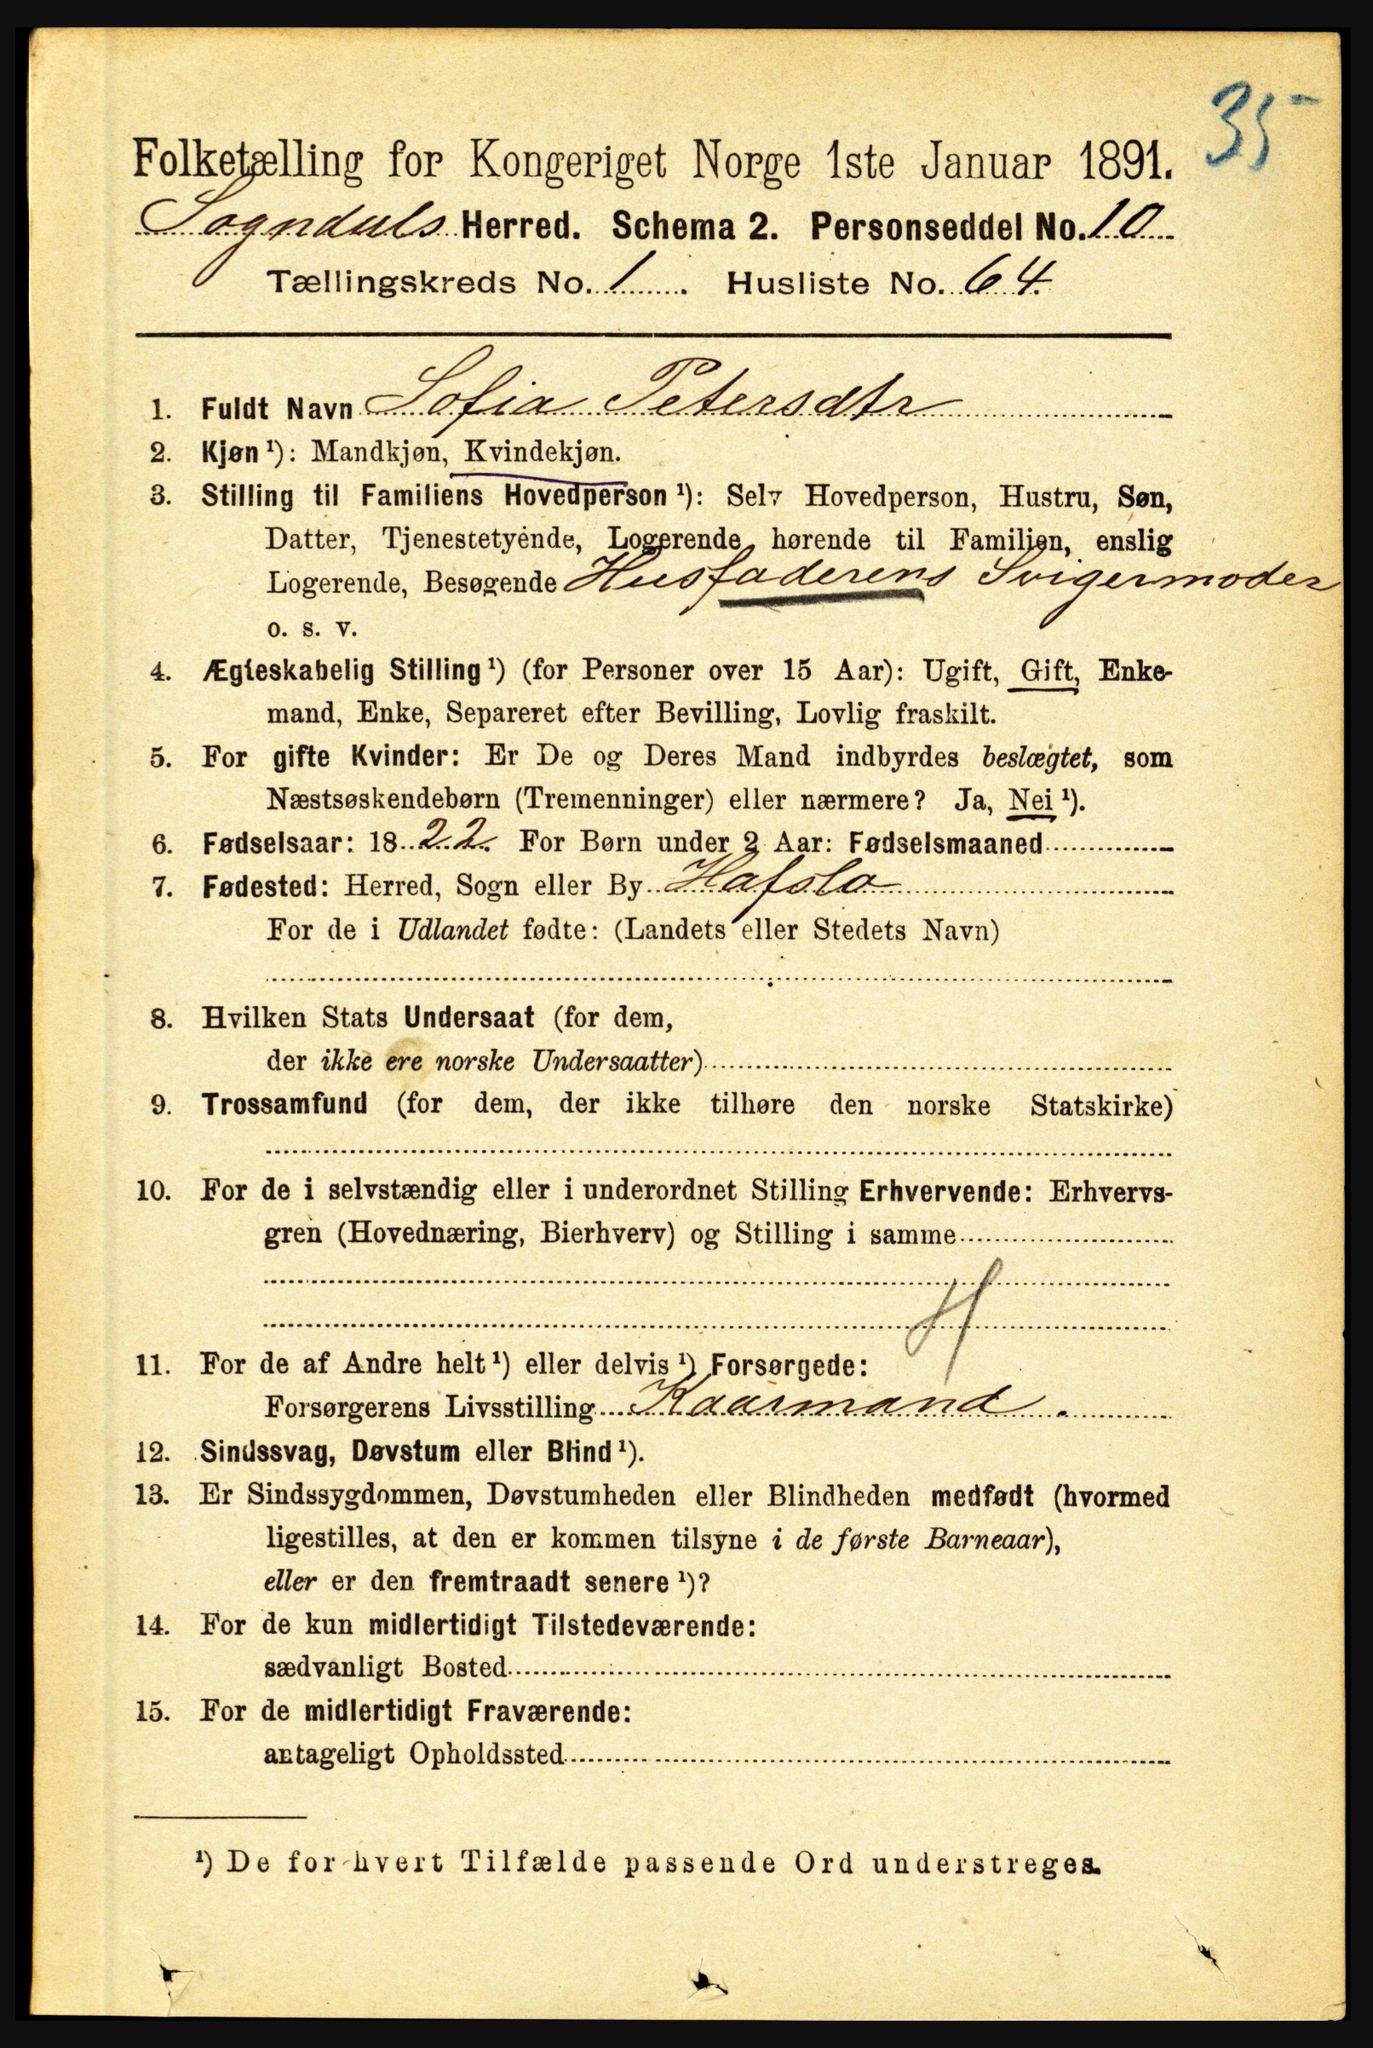 35
Folketælling for Kongeriget Norge 1ste Januar 1891.
Sogndals Herred. Schema 2. Personseddel No. 10
Tællingskreds No. 1. Husliste No. 64.
1. Fuldt Navn Sofia Petersdtr
2. Kjøn ¹): Mandkjøn, Kvindekjøn.
3. Stilling til Familiens Hovedperson ¹): Selv Hovedperson, Hustru, Søn,
Datter, Tjenestetyende, Logerende hørende til Familien, enslig
Logerende, Besøgende Husfaderens Svigermoder
o. s. v.
4. Ægteskabelig Stilling ¹) (for Personer over 15 Aar): Ugift, Gift, Enke-
mand, Enke, Separeret efter Bevilling, Lovlig fraskilt.
5. For gifte Kvinder: Er De og Deres Mand indbyrdes beslægtet, som
Næstsøskendebørn (Tremenninger) eller nærmere? Ja, Nei ¹).
6. Fødselsaar: 1822. For Børn under 2 Aar: Fødselsmaaned
7. Fødested: Herred, Sogn eller By Hafslo
For de i Udlandet fødte: (Landets eller Stedets Navn)
8. Hvilken Stats Undersaat (for dem,
der ikke ere norske Undersaatter)
9. Trossamfund (for dem, der ikke tilhøre den norske Statskirke)
10. For de i selvstændig eller i underordnet Stilling Erhvervende: Erhvervs-
gren (Hovednæring, Bierhverv) og Stilling i samme
H
11. For de af Andre helt ¹) eller delvis ¹) Forsørgede:
Forsørgerens Livsstilling Kaarmand.
12. Sindssvag, Døvstum eller Blind ¹).
13. Er Sindssygdommen, Døvstumheden eller Blindheden medfødt (hvormed
ligestilles, at den er kommen tilsyne i de første Barneaar),
eller er den fremtraadt senere ¹)?
14. For de kun midlertidigt Tilstedeværende:
sædvanligt Bosted
15. For de midlertidigt Fraværende:
antageligt Opholdssted
¹) De for hvert Tilfælde passende Ord understreges.